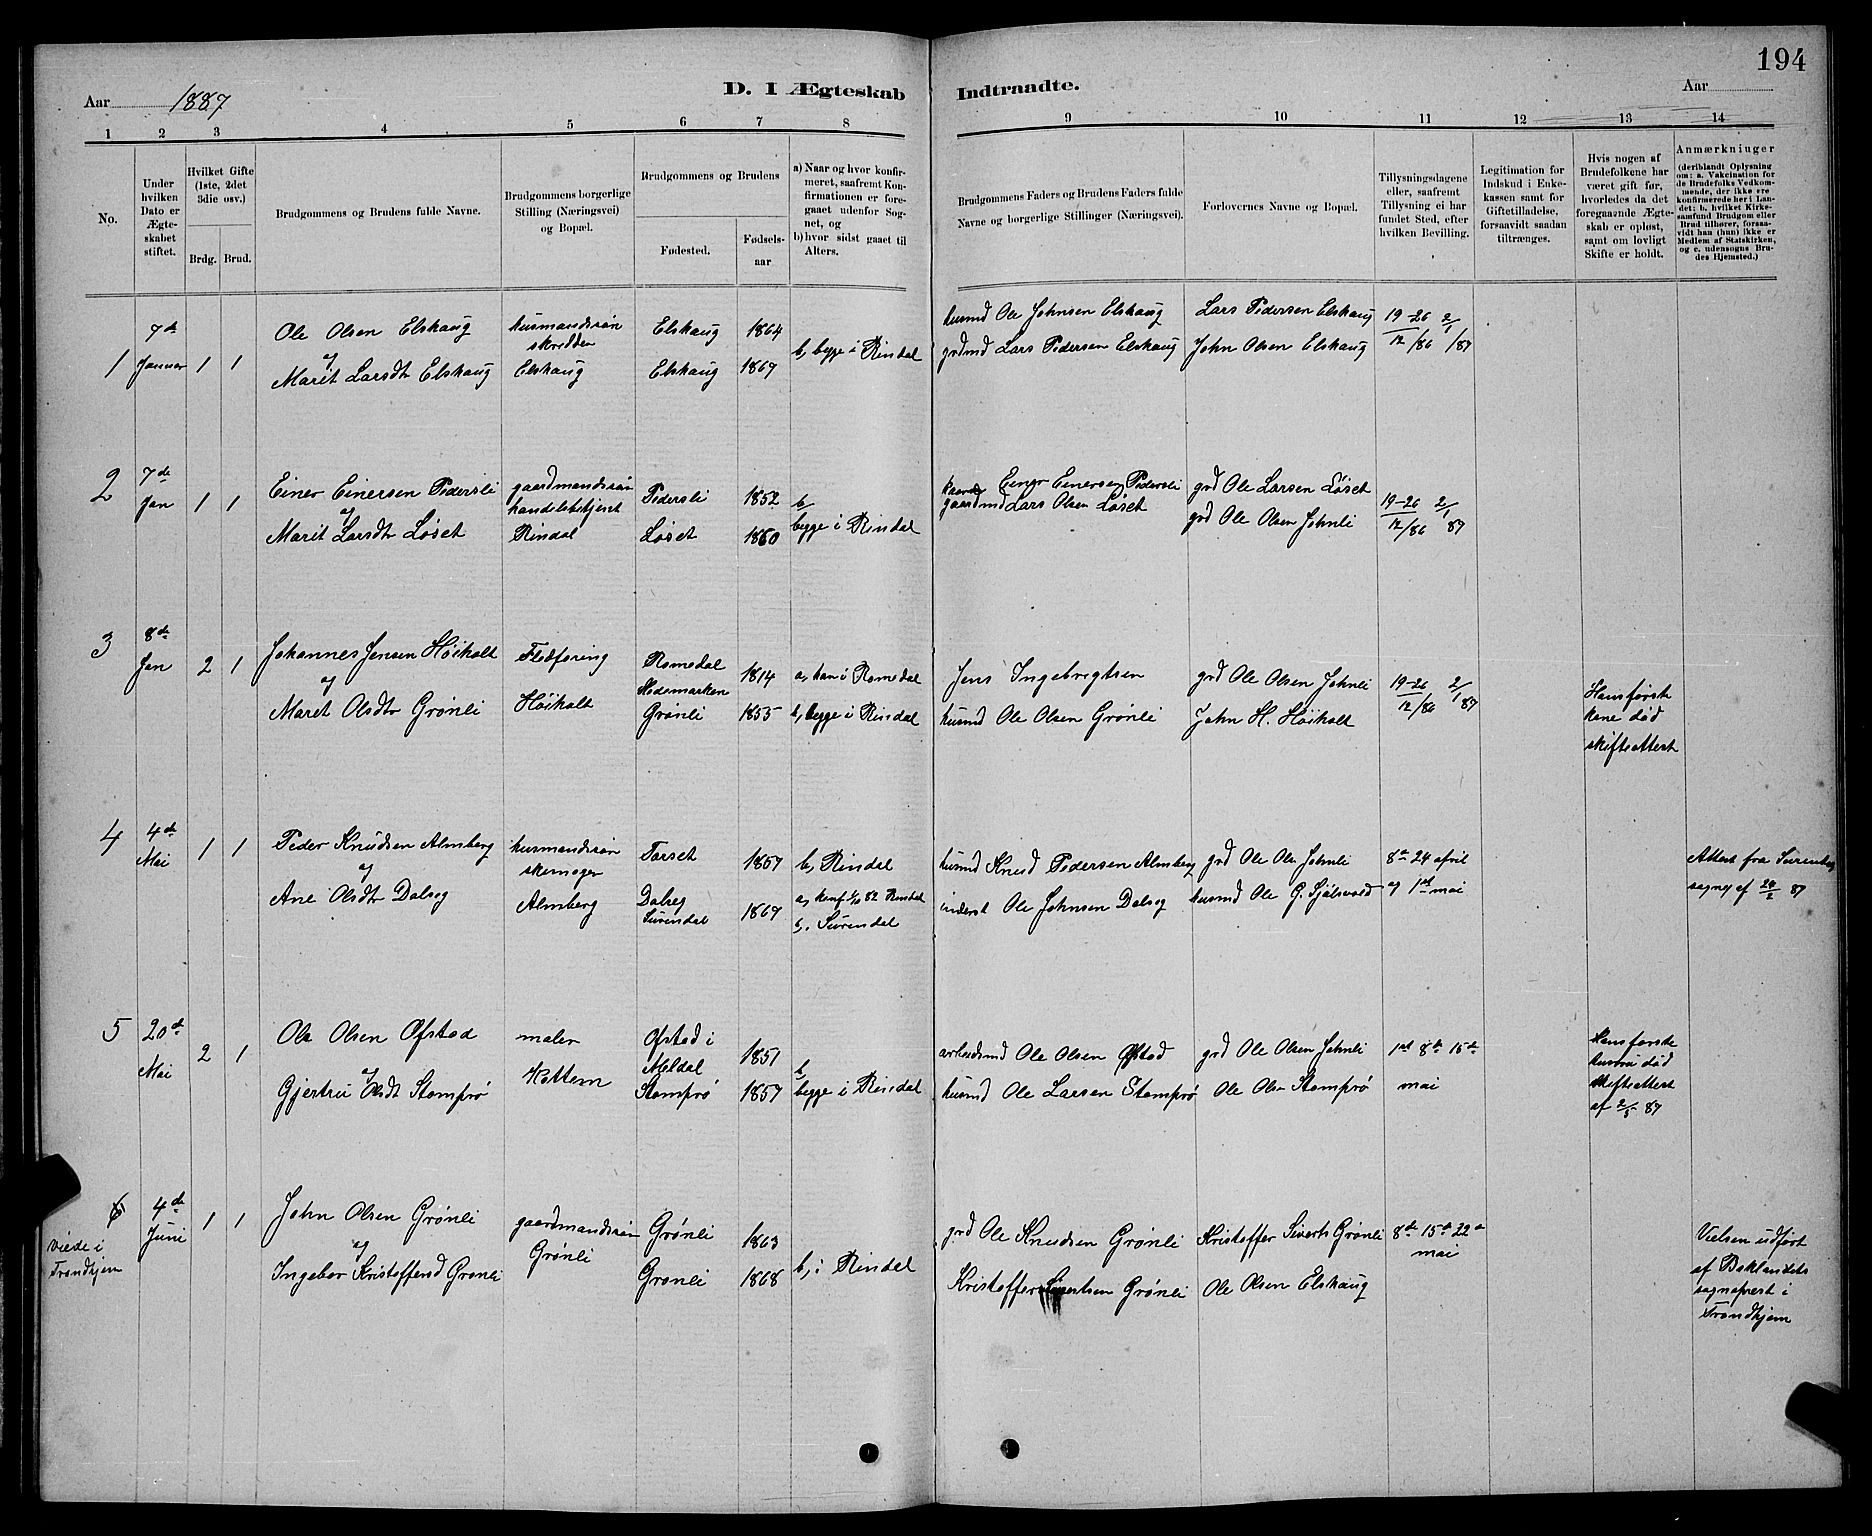 194
D. I Ægteskab Indtraadte.
Aar 1887
Aar
1 2 3 4 5 6 7 8 9 10 11 12 13 14
No.
Under
hvilken
Dato er
Ægte-
skabet
stiftet.
Hvilket Gifte
(1ste, 2det
3die osv.)
Brdg. Brud.
Brudgommens og Brudens fulde Navne.
Brudgommens borgerlige
Stilling (Næringsvei)
og Bopæl.
Brudgommens og Brudens
Fødested.
Fødsels-
aar
a) Naar og hvor konfir-
meret, saafremt Kon-
firmationen er fore-
gaaet udenfor Sog-
net, og
b) hvor sidst gaaet til
Alters.
Brudgommens Faders og Brudens Faders fulde
Navne og borgerlige Stillinger (Næringsvei).
Forlovernes Navne og Bopæl.
Tillysningsdagene
eller, saafremt
Tillysning ei har
fundet Sted, efter
hvilken Bevilling.
Legitimation for
Indskud i Enke-
kassen samt for
Giftetilladelse,
forsaavidt saadan
tiltrænges.
Hvis nogen af
Brudefolkene har
været gift før,
hvorledes da det
foregaaende Ægte-
skab er opløst,
samt om lovligt
Skifte er holdt.
Anmærkninger
(deriblandt Oplysning
om: a. Vakcination for
de Brudefolks Vedkom-
mende, der ikke ere
konfirmerede her i Lan-
det; b. hvilket Kirke-
samfund Brudgom eller
Brud tilhører, forsaa-
vidt han (hun) ikke er
Medlem af Statskirken,
og c. udensogns Bru-
des Hjemsted.)
1
7de
Januar
1 1
Ole Olsen Elshaug
og
Marit Larsdtr Elshaug
husmandssøn
skrædder
Elshaug
Elshaug 1864
Elshaug 1867
b, begge i Rindal
husmd Ole Johnsen Elshaug
grdmd Lars Pedersen Elshaug
Lars Pedersen Elshaug
John Olsen Elshaug
19-26 2/1
12/86 /87
2
7de
Jan
1 1
Einer Einersen Pedersli
og
Marit Larsdtr Løset
gaardmandssøn
handelsbetjent
Rindal
Pedersli 1852
Løset 1860
b,
begge i Rindal
Einer Einersen Pedersli
gaardmd Lars Olsen Løset
grd Ole Larsen Løset
grd Ole Olsen Johnli
19-26 2/1
12/86 87
3
8de
Jan
2 1
Johannes Jensen Høiholt
og
Maret Olsdtr Grønli
Flødføring
Høiholt
Romedal
Hedemarken 1814
Grønli 1855
a, han i Romedal
b, begge i Rindal
Jens Ingebrigtsen
husmd Ole Olsen Grønli
grd Ole Olsen Johnli
John H. Høiholt
19-26 2/1
12/86 87
Hans første
kone død
skifteattest
4
4de
Mai
1 1
Peder Knudsen Almberg
og
Ane Olsdtr Dalseg
husmandssøn
skomager
Almberg
Torset 1857
Dalseg
Surendal 1867
b, Rindal
a, konf 1/10 82 Rindal
b, Surendal
husmd Knud Pedersen Almberg
inderst Ole Johnsen Dalseg
grd Ole Ols Johnli
husmd Ole G. Sjølsvold
8de 24 april
og 1st mai
Attest fra Surendal
sogn af 24/2 87
5
20de
Mai
2 1
Ole Olsen Øfstad
og
Gjertru Olsdt Stomprø
maler
Kottem
Øfstad i
Meldal 1851
Stomprø 1857
b,
begge i Rindal
arbeidsmd Ole Olsen Øfstad
husmd Ole Larsen Stomprø
grd Ole Olsen Johnli
Ole Olsn Stomprø
1st 8de 15de
mai
Hans første
hustru død
skifteattest
af 2/5 87
6
viede i
Trondhjem
4de
Juni
1 1
John Olsen Grønli
og
Ingebor Kristoffersd Grønli
gaardmandssøn
Grønli
Grønli 1863
Grønli 1868
b, i Rindal
grd Ole Knudsen Grønli
Kristoffer Sivertsen Grønli
Kristoffer Siverts Grønli
Ole Olsen Elshaug
8de 15de 22de
mai
Vielsen udført
af Baklandets
sogneprest i
Trondhjem